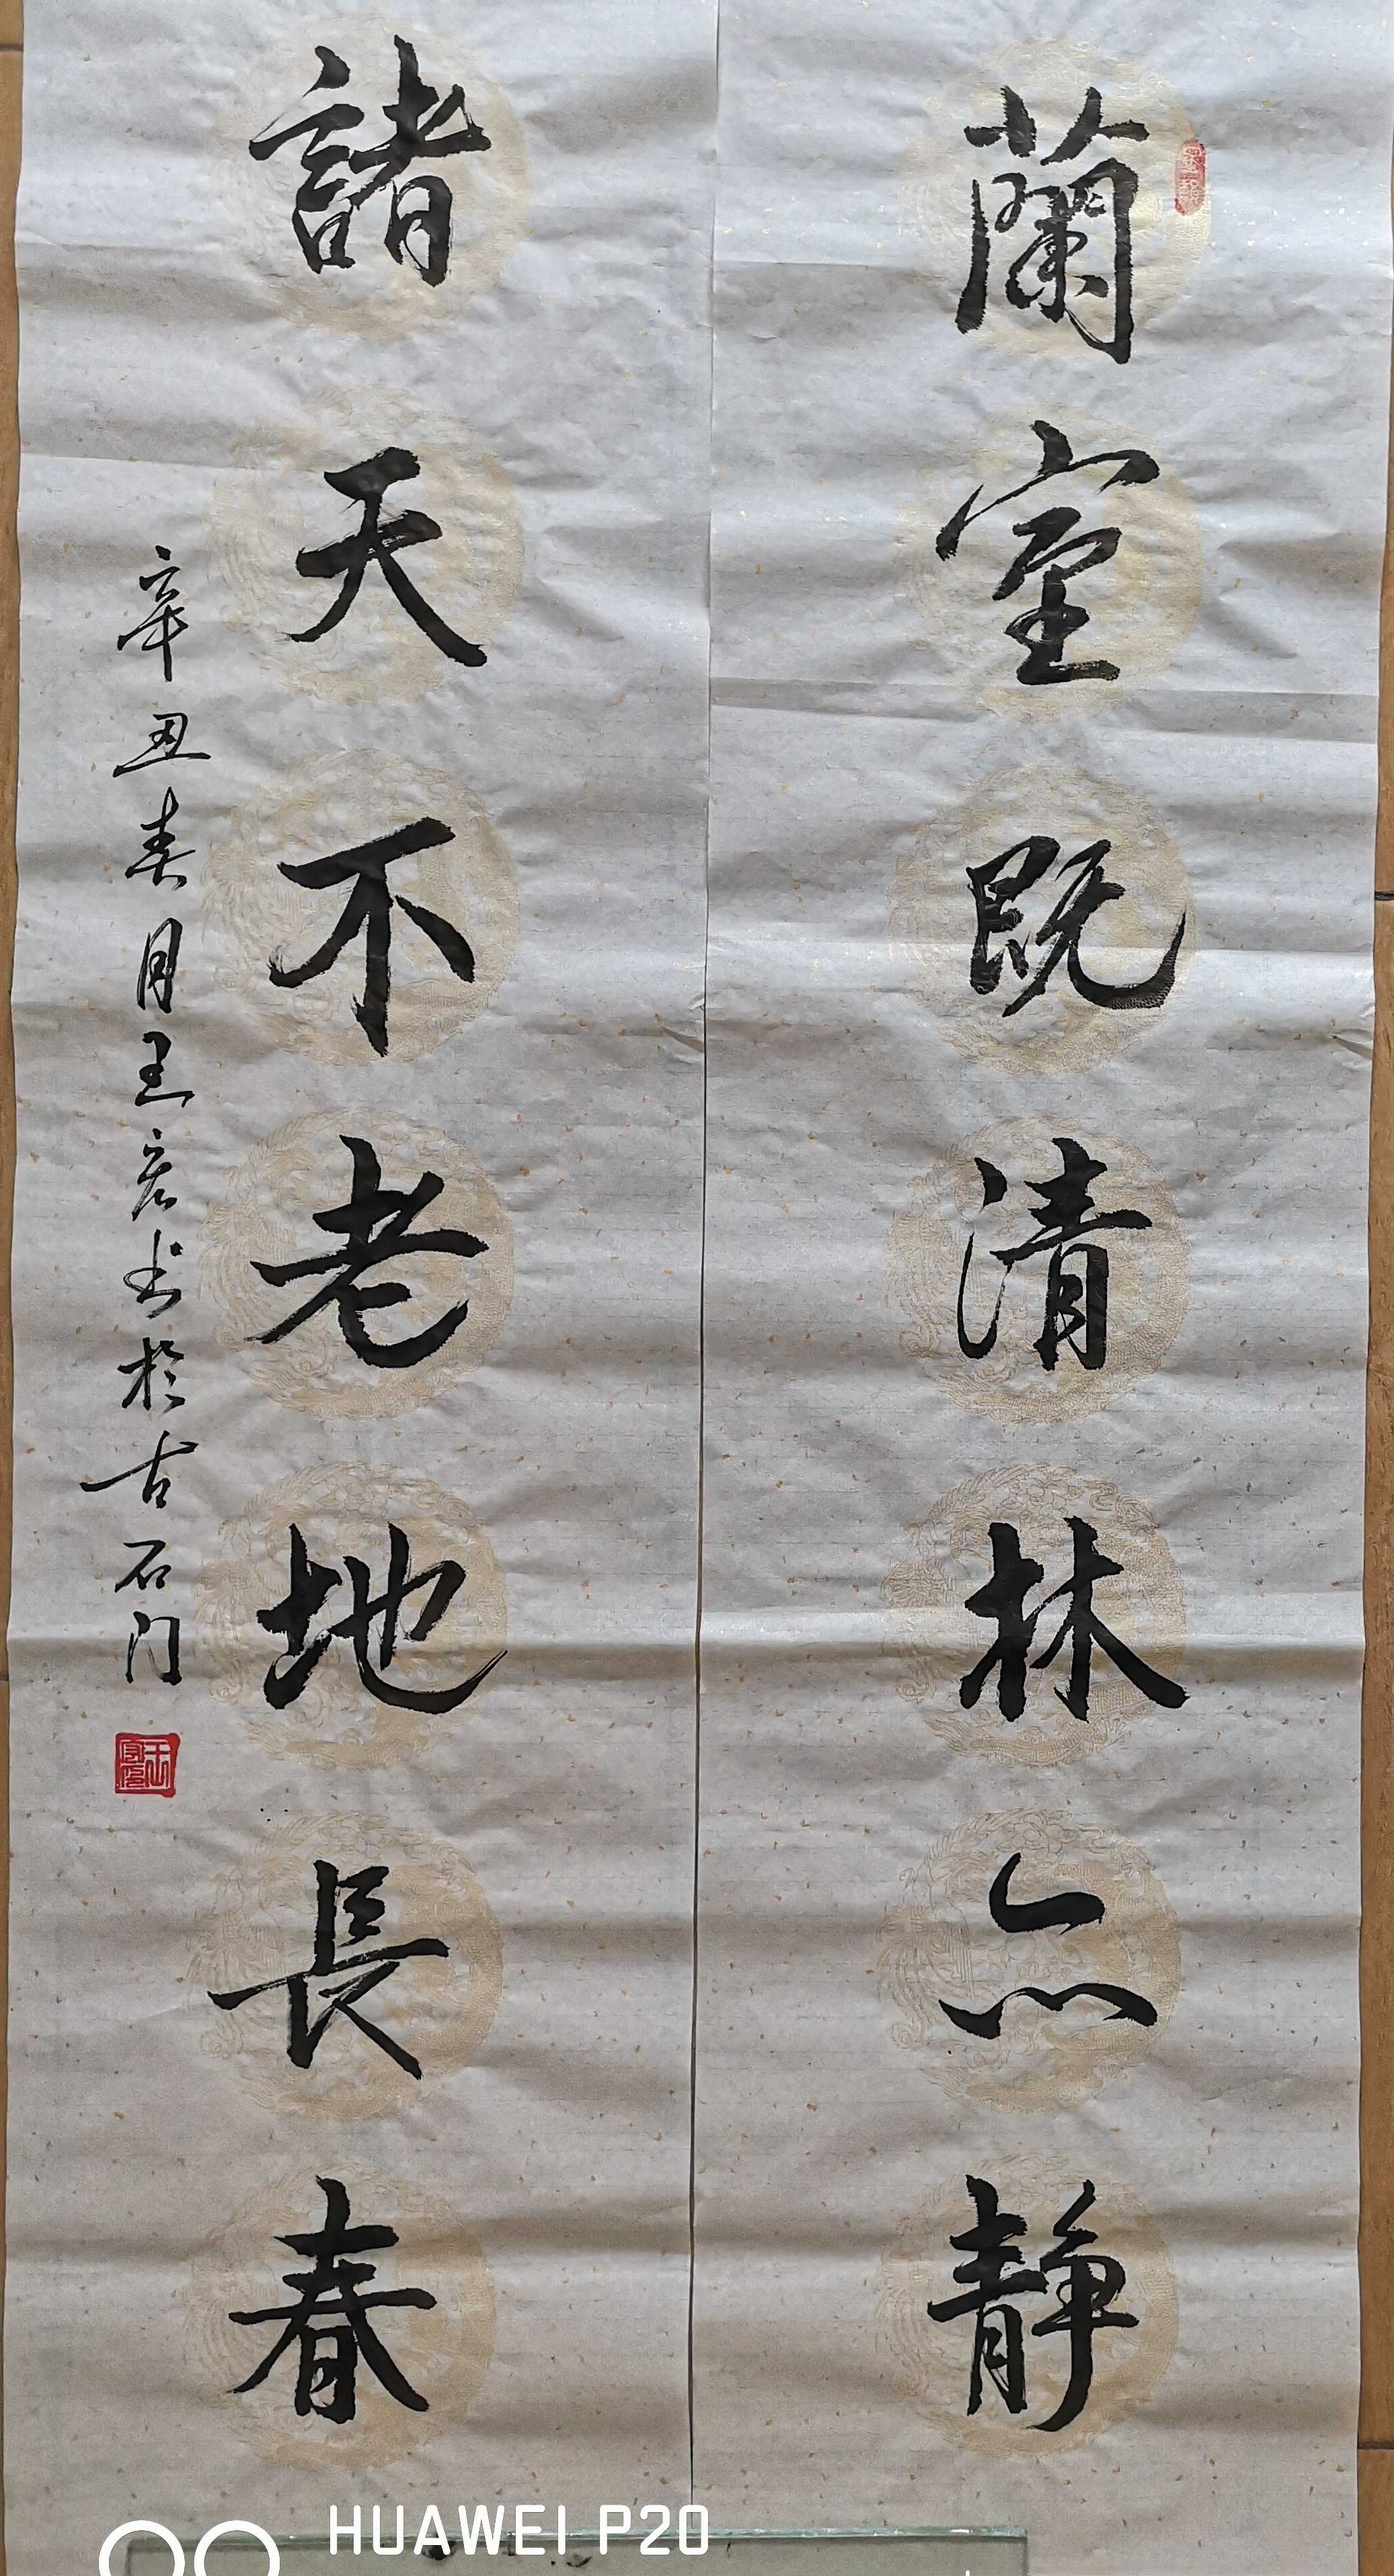 蘭室既清林亦静
諸天不老地長春
辛丑春月王宏书於古石门
HUAWEI P20